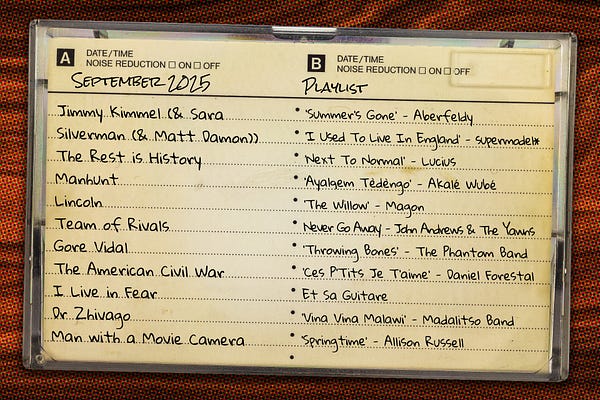 A DATE/TIME
NOISE REDUCTION ☐ ON ☐ OFF
September 2025
Jimmy Kimmel (& Sara
Silverman (& Matt Damon))
The Rest is History
Manhunt
Lincoln
Team of Rivals
Gore Vidal
The American Civil War
I Live in Fear
Dr. Zhivago
Man with a Movie Camera
B DATE/TIME
NOISE REDUCTION ☐ ON ☐ OFF
Playlist
• 'Summer's Gone' - Aberfeldy
• 'I Used To Live In England' - supermodel*
• 'Next To Normal' - Lucius
• 'Ayalgem Tèdèngo' - Akalé Wubé
• 'The Willow' - Magon
• Never Go Away - John Andrews & The Yawns
• 'Throwing Bones' - The Phantom Band
• 'Ces P'Tits Je T'aime' - Daniel Forestal
• Et Sa Guitare
• 'Vina Vina Malawi' - Madalitso Band
• 'Springtime' - Allison Russell
•